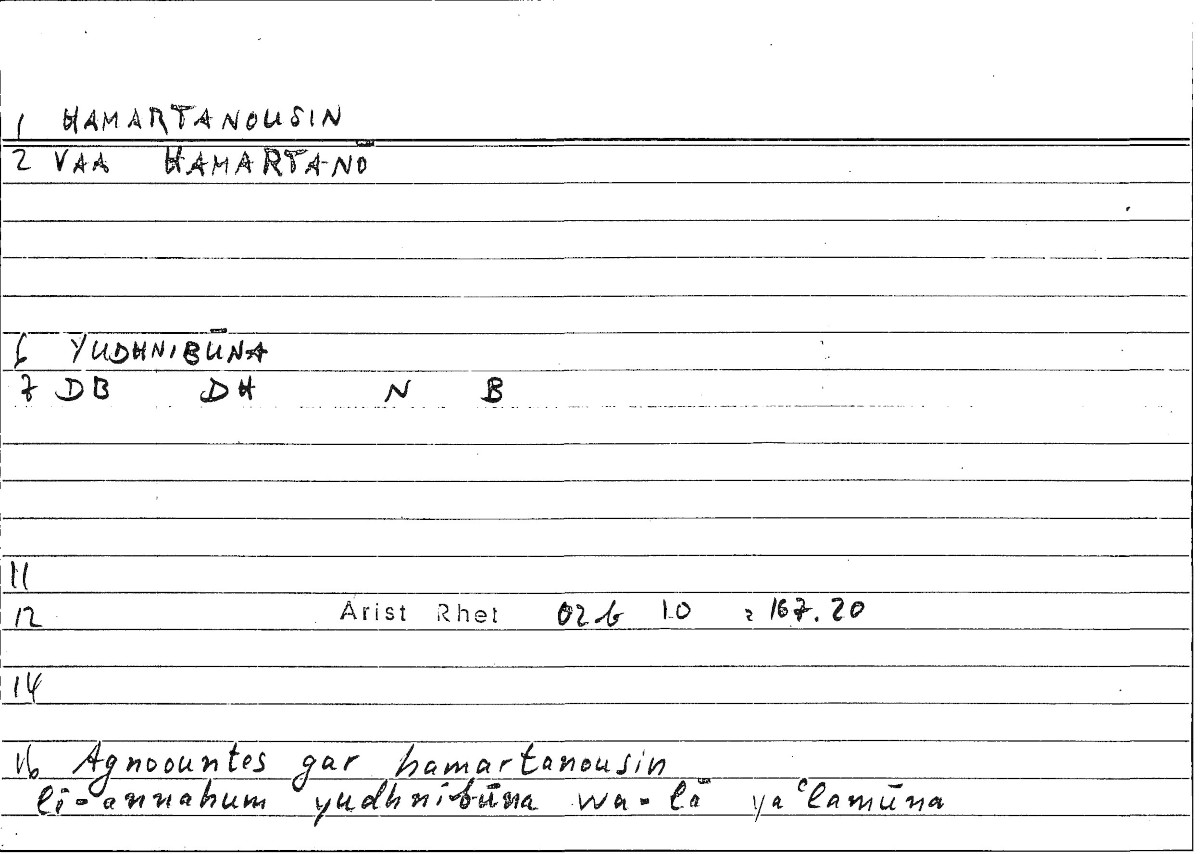 1 HAMARTANOUSIN
2 VAA HAMARTANŌ
6 YUDHNIBŪNA
7 DB DH N B
11
12 Arist Rhet 02b 10 = 167.20
14
16 Agnoountes gar hamartanousin
li-annahum yudhnibūna wa-lā yaʿlamūna